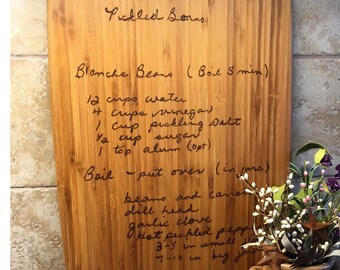 Pickled Beans
Blanche Beans (Boil 5 min)
12 cups water
4 cups vinegar
1 cup pickling salt
1/2 cup sugar
1 top alum (opt)
Boil - put over (in jars)
beans and carrots
dill head
garlic clove
Hot pickled pepp
3-5 in small
7-10 in big jar